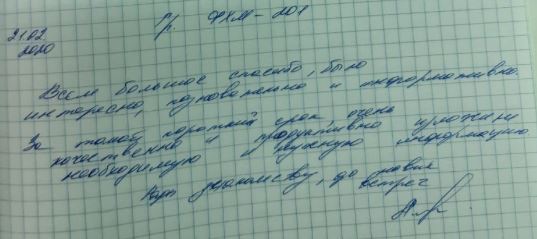 21.02.
2020
Гр. ФХМ-201
Всем большое спасибо, было
интересно, познавательно и информативно.
За такой короткий срок, очень
качественно и продуктивно изложили
необходимую и нужную информацию
знакомству, до новых
встреч